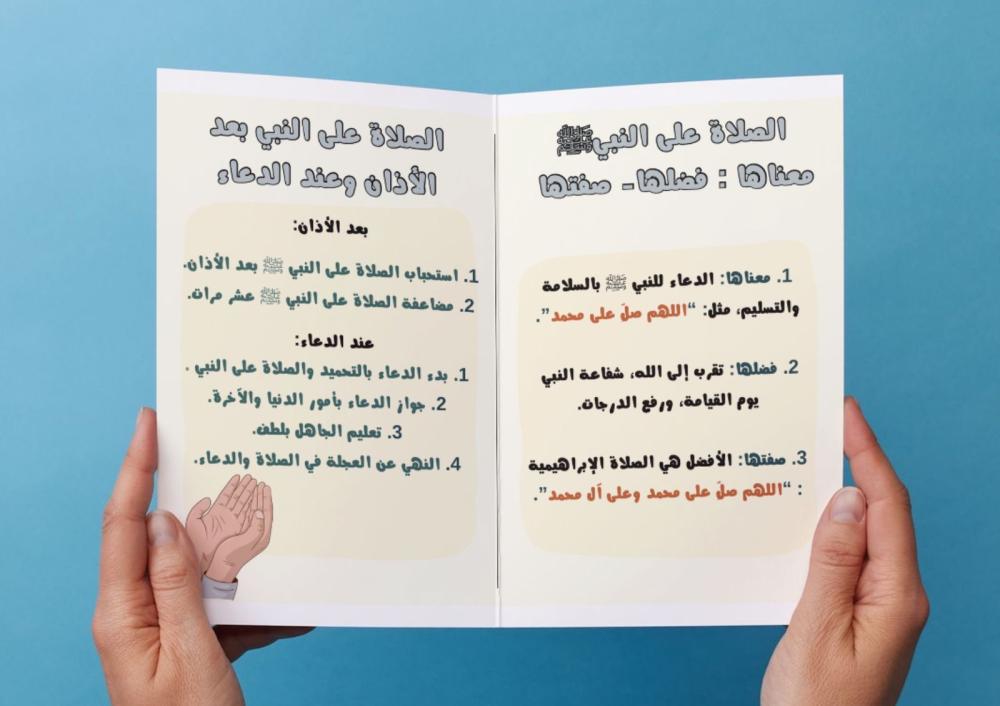 الصلاة على النبي ﷺ
معناها : فضلها- صفتها
1. معناها: الدعاء للنبي ﷺ بالسلامة
والتسليم، مثل: “اللهم صلّ على محمد”.
2. فضلها: تقرب إلى الله، شفاعة النبي
يوم القيامة، ورفع الدرجات.
3. صفتها: الأفضل هي الصلاة الإبراهيمية
: “اللهم صلّ على محمد وعلى آل محمد”.
الصلاة على النبي بعد
الأذان وعند الدعاء
بعد الأذان:
1. استحباب الصلاة على النبي ﷺ بعد الأذان.
2. مضاعفة الصلاة على النبي ﷺ عشر مرات.
عند الدعاء:
1. بدء الدعاء بالتحميد والصلاة على النبي .
2. جواز الدعاء بأمور الدنيا والآخرة.
3. تعليم الجاهل بلطف.
4. النهي عن العجلة في الصلاة والدعاء.